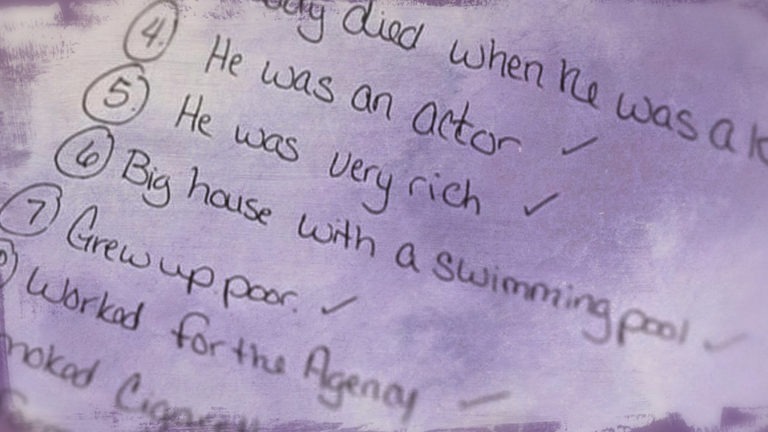 died when he was a
4. He was an actor ✓
5. He was very rich ✓
6 Big house with a swimming pool ✓
7 Grew up poor. ✓
Worked for the Agency ✓
moked